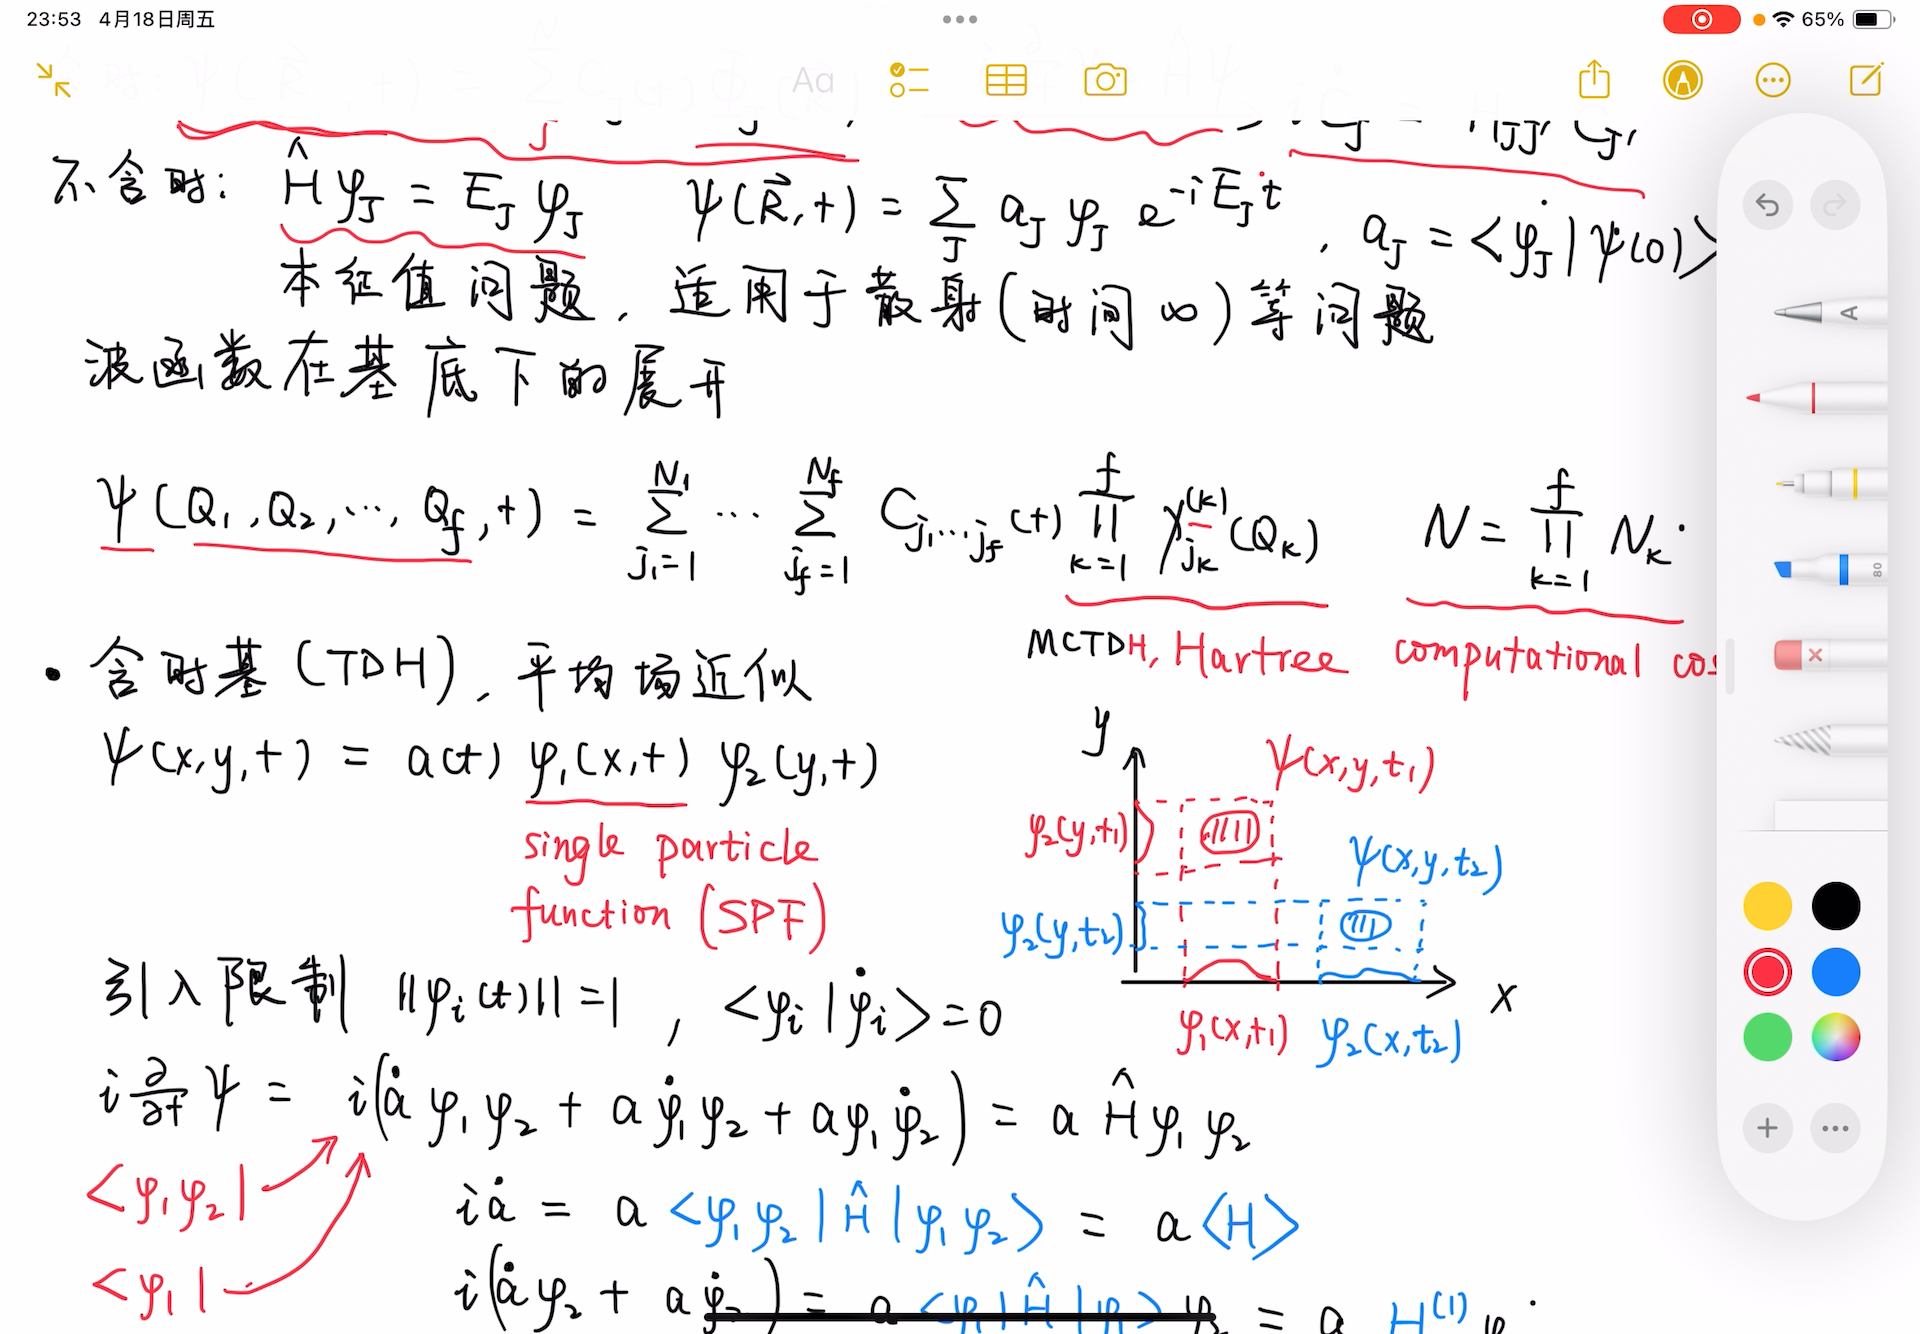 23:53 4月18日周五 65%
Aa
不含时: Ĥφ_J = E_J φ_J ψ(R⃗,t) = Σ_J a_J φ_J e^{-iE_J t} , a_J = <φ_J|ψ(0)>
本征值问题, 适用于散射(时间∞)等问题
波函数在基底下的展开
ψ(Q₁,Q₂,…,Q_f,t) = Σ_{j₁=1}^{N₁} … Σ_{j_f=1}^{N_f} C_{j₁…j_f}(t) ∏_{k=1}^{f} χ_{j_k}^{(k)}(Q_k) N = ∏_{k=1}^{f} N_k
MCTDH, Hartree computational
• 含时基(TDH), 平均场近似
ψ(x,y,t) = a(t) φ₁(x,t) φ₂(y,t)
single particle
function (SPF)
y
ψ(x,y,t₁)
φ₂(y,t₁)
ψ(x,y,t₂)
φ₂(y,t₂)
x
φ₁(x,t₁) φ₂(x,t₂)
引入限制 ||φᵢ(t)||=1 , <φᵢ|φ̇ᵢ>=0
i ∂/∂t ψ = i(ȧφ₁φ₂ + aφ̇₁φ₂ + aφ₁φ̇₂) = a Ĥφ₁φ₂
<φ₁φ₂| iȧ = a <φ₁φ₂|Ĥ|φ₁φ₂> = a<H>
<φ₁| i(ȧφ₂ + aφ̇₂) = a <φ₁|Ĥ|φ₁> φ₂ = a H⁽¹⁾ φ
80